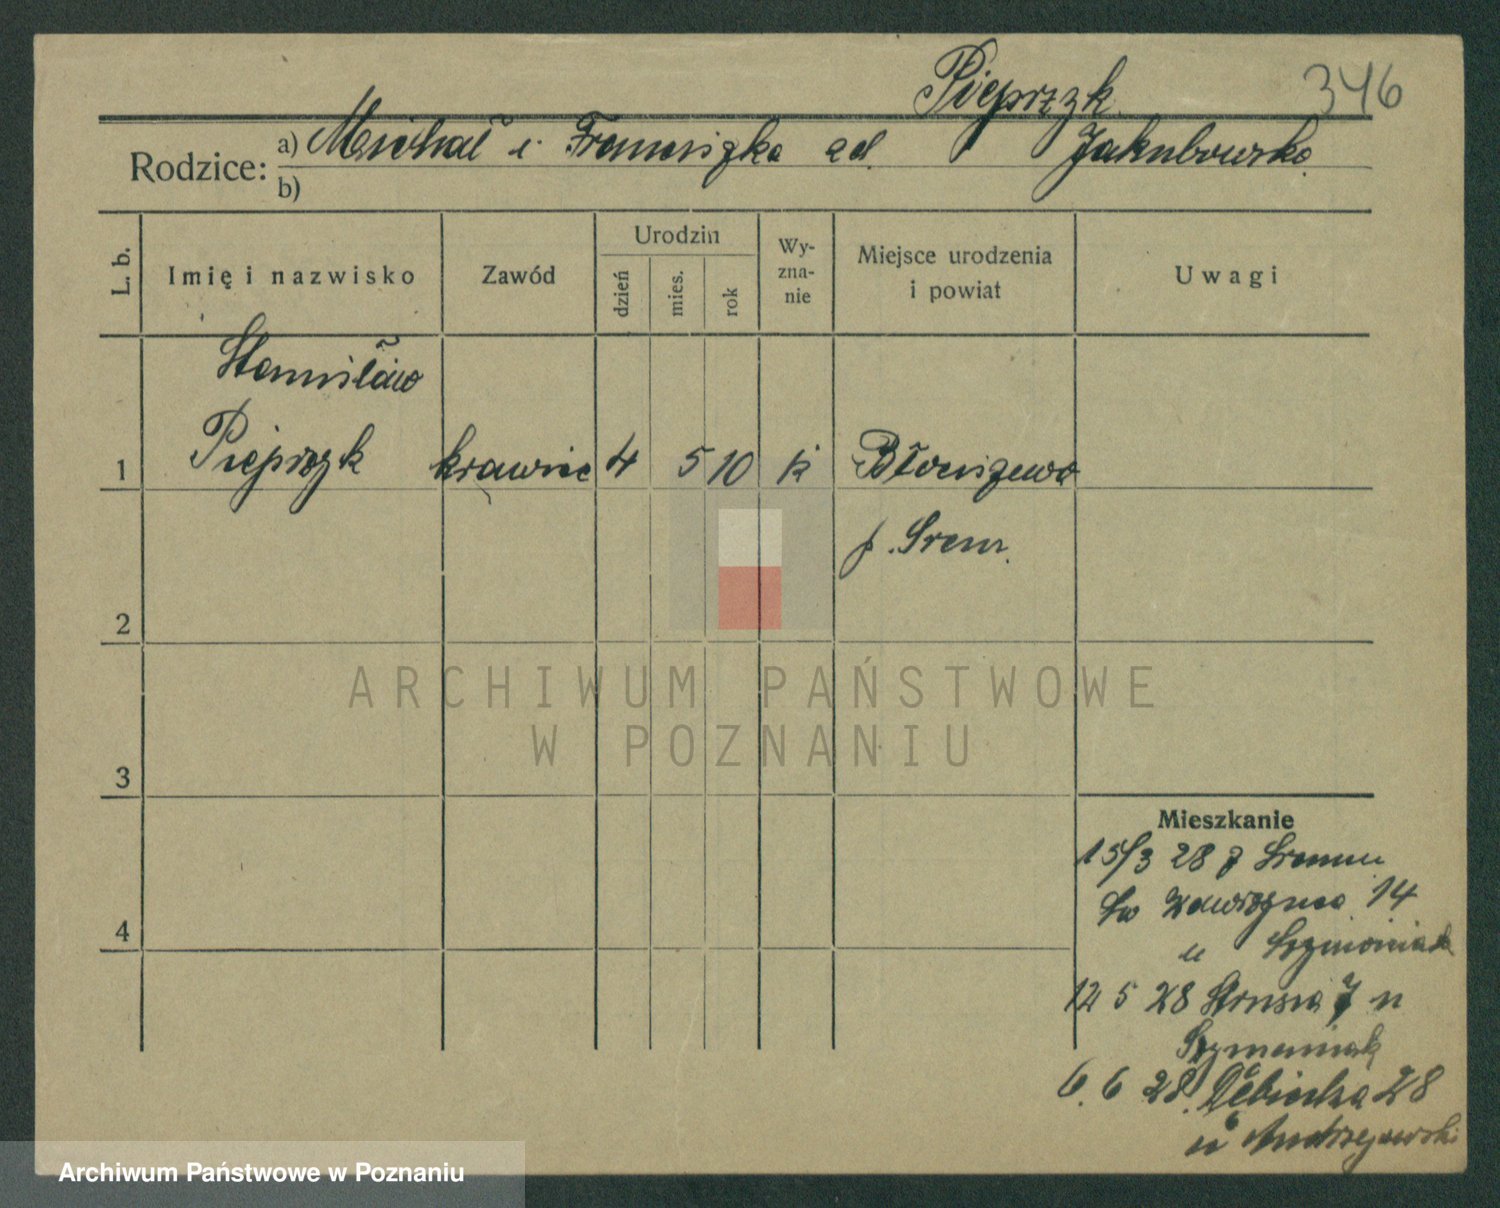 Pieprzyk 346
Rodzice: a) Michał i Franciszka zd. Jakubowska
b)
L. b. Imię i nazwisko Zawód Urodzin dzień mies. rok Wyznanie Miejsce urodzenia i powiat Uwagi
Stanisław
1 Pieprzyk krawiec 4 5 10 k Błociszewo
p. Śrem.
2
ARCHIWUM PAŃSTWOWE
W POZNANIU
3
Mieszkanie
15/3 28 z Śremu
14
4
u Szymoniak
12 5 28 Strusia 7 u
Szymaniak
6. 6 28. Dębiecka 28
u Andrzejewski
Archiwum Państwowe w Poznaniu